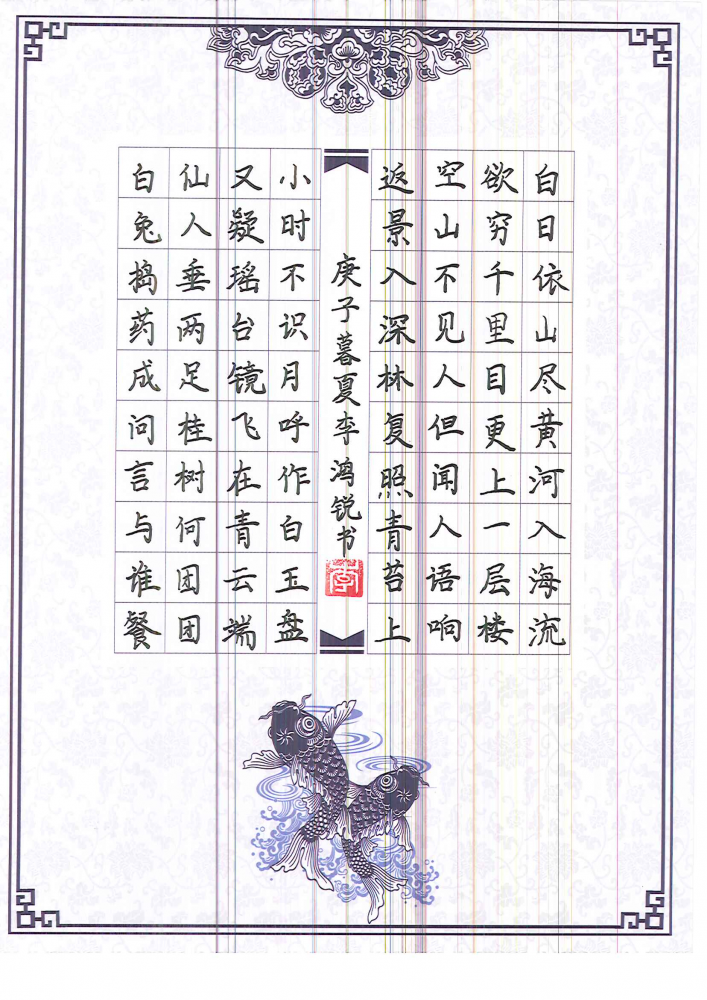 白日依山尽黄河入海流
欲穷千里目更上一层楼
空山不见人但闻人语响
返景入深林复照青苔上
庚子暮夏李鸿锐书
李
小时不识月呼作白玉盘
又疑瑶台镜飞在青云端
仙人垂两足桂树何团团
白兔捣药成问言与谁餐